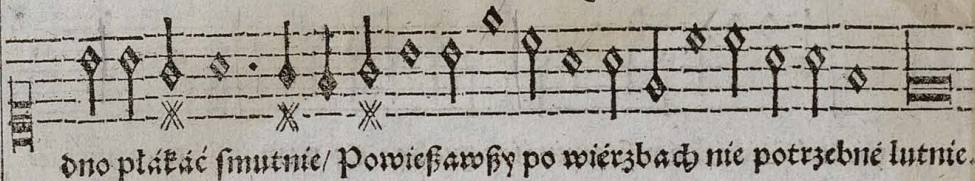 dno płákáć ſmutnie/ Powießawßy po wiérzbach nie potrzebné lutnie.